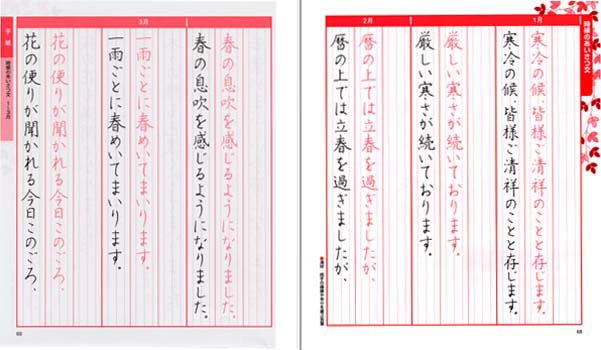 時候のあいさつ文
1月
寒冷の候、皆様ご清祥のことと存じます。
寒冷の候、皆様ご清祥のことと存じます。
厳しい寒さが続いております。
厳しい寒さが続いております。
2月
暦の上では立春を過ぎましたが、
暦の上では立春を過ぎましたが、
3月
春の息吹を感じるようになりました。
春の息吹を感じるようになりました。
一雨ごとに春めいてまいります。
一雨ごとに春めいてまいります。
花の便りが聞かれる今日このごろ、
花の便りが聞かれる今日このごろ、
手紙
時候のあいさつ文 1〜3月